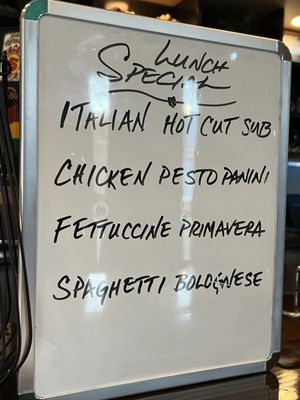 LUNCH
SPECIAL
ITALIAN HOT CUT SUB
CHICKEN PESTO PANINI
FETTUCCINE PRIMAVERA
SPAGHETTI BOLOGNESE